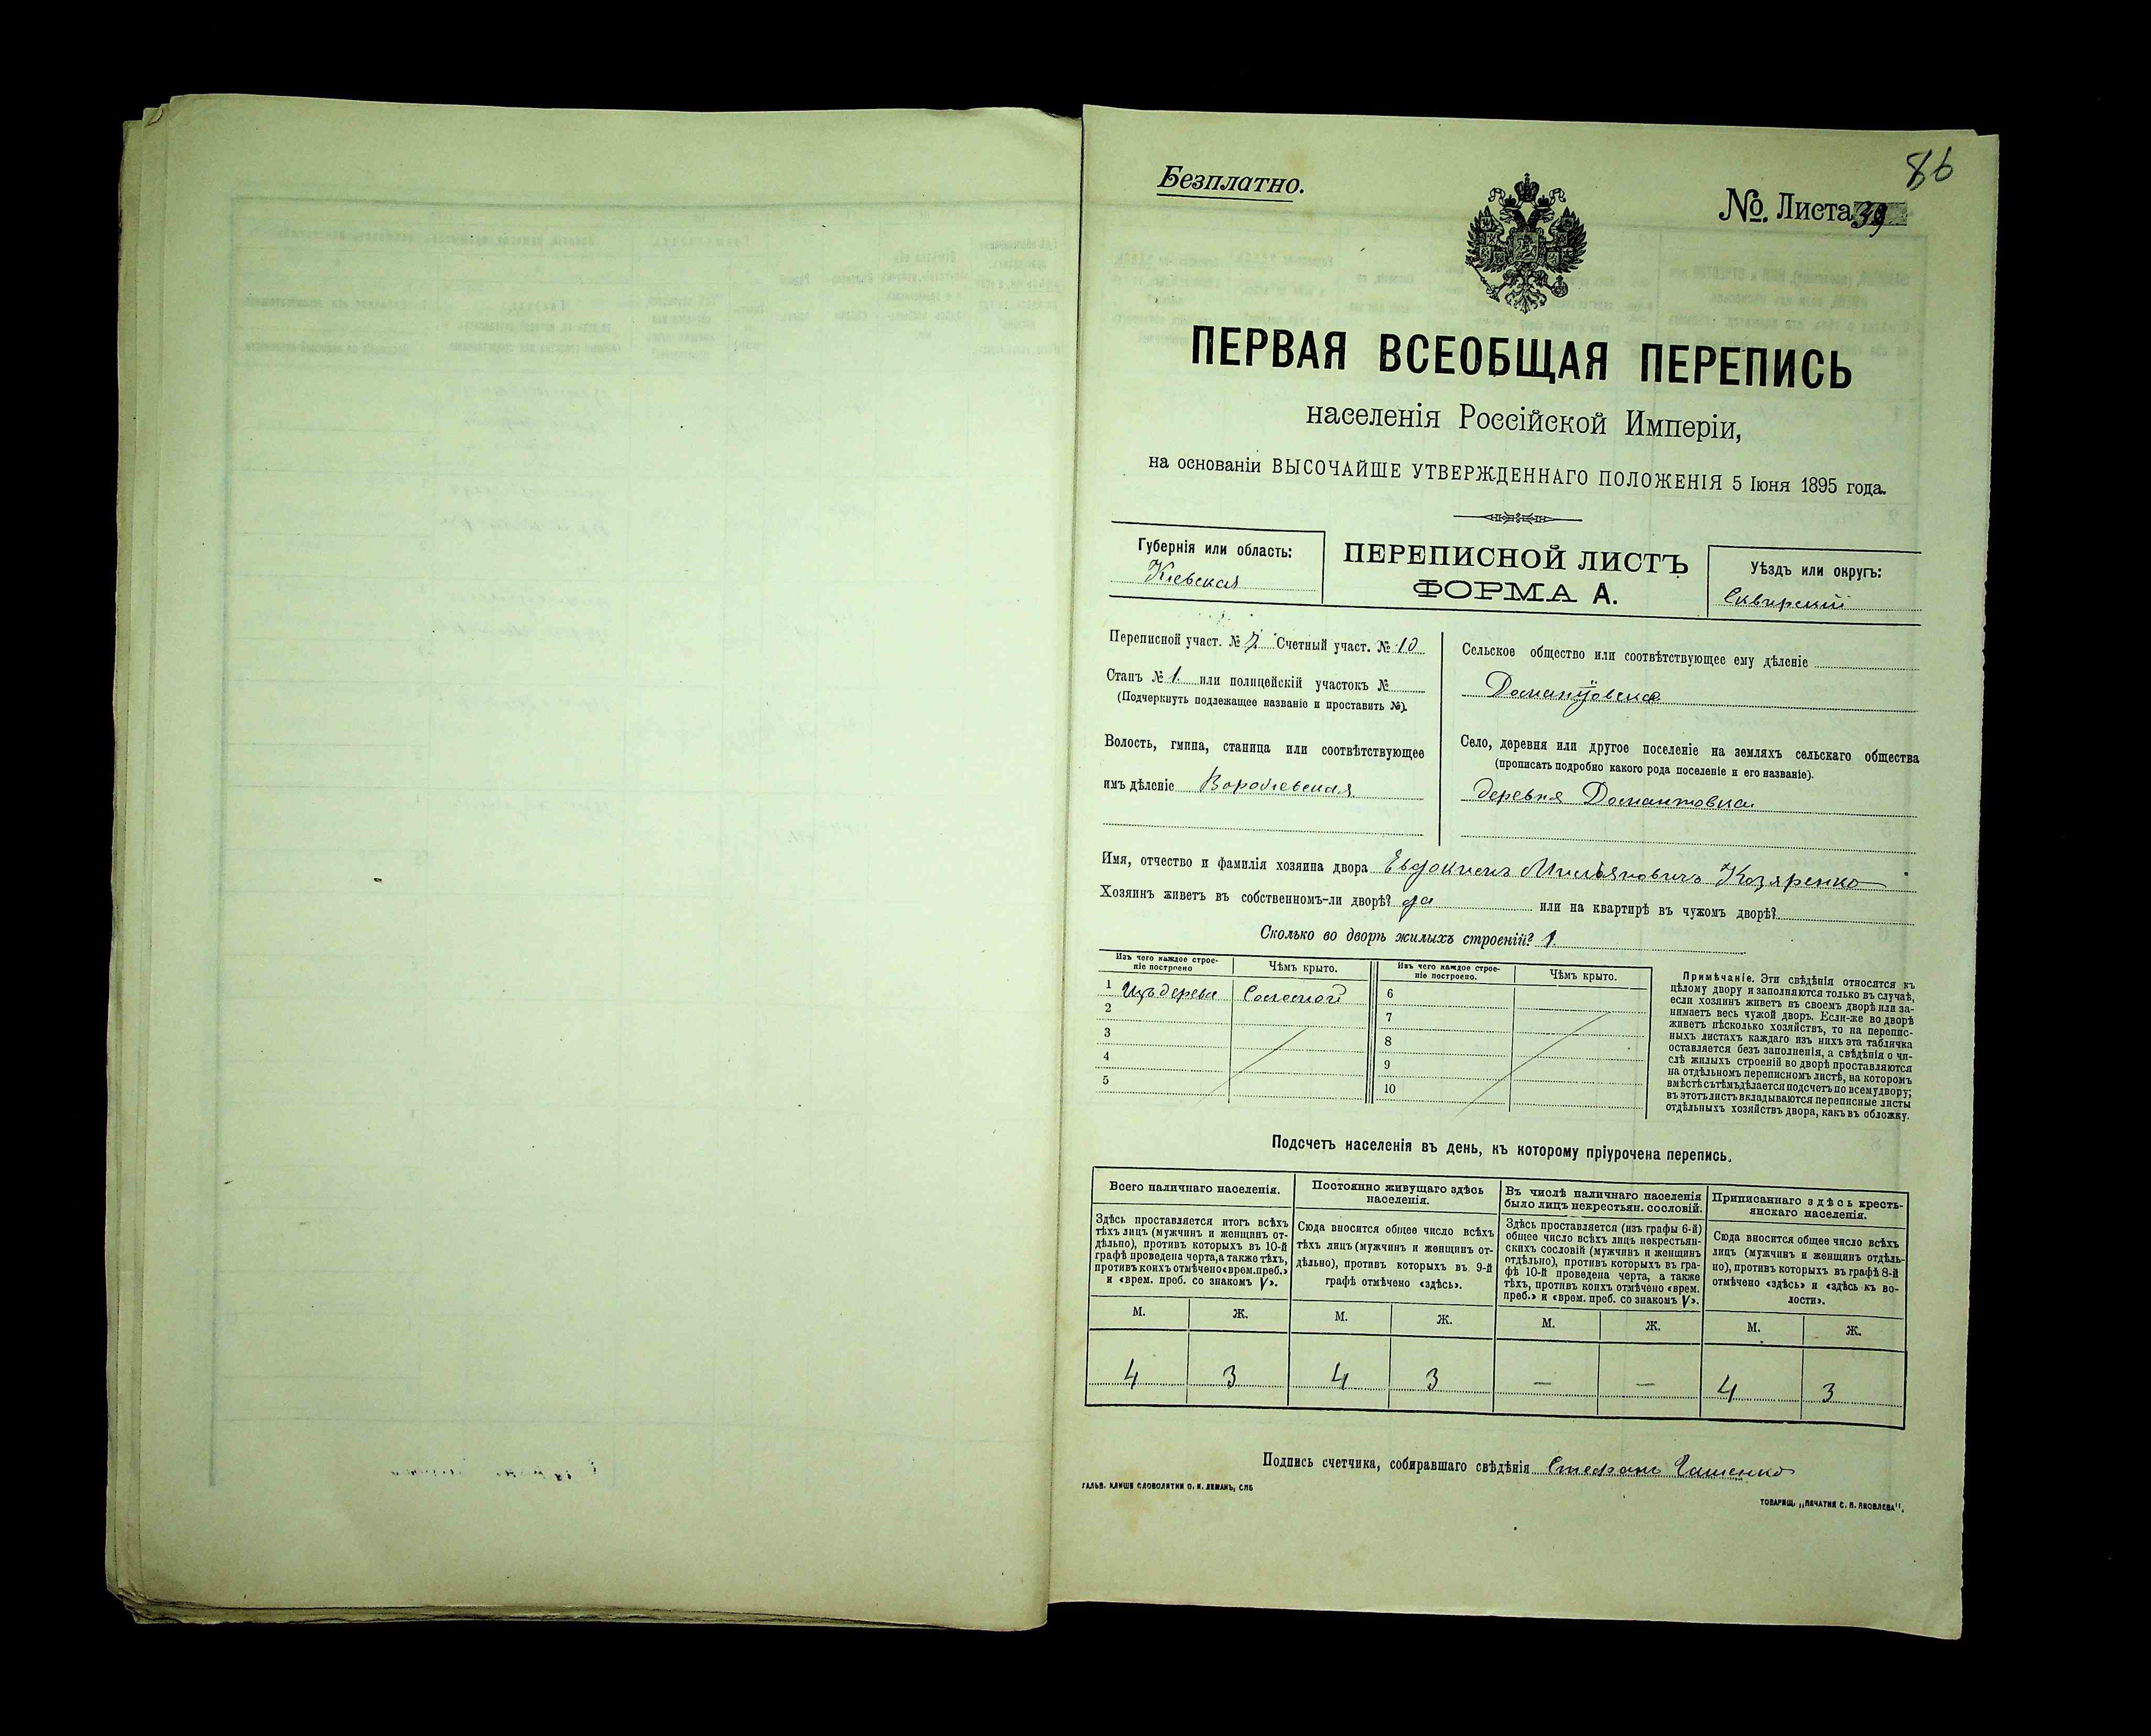 86
Безплатно.
№. Листа 39
ПЕРВАЯ ВСЕОБЩАЯ ПЕРЕПИСЬ
населенія Россійской Имперіи,
на основаніи ВЫСОЧАЙШЕ УТВЕРЖДЕННАГО ПОЛОЖЕНІЯ 5 Іюня 1895 года.
Губернія или область:
Кіевская
ПЕРЕПИСНОЙ ЛИСТЪ
ФОРМА А.
Уѣздъ или округъ:
Сквирскій
Переписной участ. № 7 Счетный участ. № 10
Станъ № 1. или полицейскій участокъ №
(Подчеркнуть подлежащее названіе и проставить №).
Волость, гмина, станица или соотвѣтствующее
имъ дѣленіе
Сельское общество или соотвѣтствующее ему дѣленіе
Село, деревня или другое поселеніе на земляхъ сельскаго общества
(прописать подробно какого рода поселеніе и его названіе).
деревня Домантовка
Имя, отчество и фамилія хозяина двора Евдокимъ Козяренко
Хозяинъ живетъ въ собственномъ-ли дворѣ? да или на квартирѣ въ чужомъ дворѣ?
Сколько во дворѣ жилыхъ строеній? 1.
Изъ чего каждое строе-
ніе построено
Чѣмъ крыто.
Изъ чего каждое строе-
ніе построено.
Чѣмъ крыто.
1 Изъ дерева Соломой
2
3
4
5
6
7
8
9
10
Примѣчаніе. Эти свѣдѣнія относятся къ
цѣлому двору и заполняются только въ случаѣ,
если хозяинъ живетъ въ своемъ дворѣ или за-
нимаетъ весь чужой дворъ. Если-же во дворѣ
живетъ нѣсколько хозяйствъ, то на перепис-
ныхъ листахъ каждаго изъ нихъ эта табличка
оставляется безъ заполненія, а свѣдѣнія о чи-
слѣ жилыхъ строеній во дворѣ проставляются
на отдѣльномъ переписномъ листѣ, на которомъ
вмѣстѣ съ тѣмъ дѣлается подсчетъ по всему двору;
въ этотъ листъ вкладываются переписные листы
отдѣльныхъ хозяйствъ двора, какъ въ обложку.
Подсчетъ населенія въ день, къ которому пріурочена перепись.
Всего наличнаго населенія.
Здѣсь проставляется итогъ всѣхъ
тѣхъ лицъ (мужчинъ и женщинъ от-
дѣльно), противъ которыхъ въ 10-й
графѣ проведена черта, а также тѣхъ,
противъ коихъ отмѣчено «врем. преб.»
и «врем. преб. со знакомъ V».
Постоянно живущаго здѣсь
населенія.
Сюда вносится общее число всѣхъ
тѣхъ лицъ (мужчинъ и женщинъ от-
дѣльно), противъ которыхъ въ 9-й
графѣ отмѣчено «здѣсь».
Въ числѣ наличнаго населенія
было лицъ некрестьян. сословій.
Здѣсь проставляется (изъ графы 6-й)
общее число всѣхъ лицъ некрестьян-
скихъ сословій (мужчинъ и женщинъ
отдѣльно), противъ которыхъ въ гра-
фѣ 10-й проведена черта, а также
тѣхъ, противъ коихъ отмѣчено «врем.
преб.» и «врем. преб. со знакомъ V».
Приписаннаго здѣсь кресть-
янскаго населенія.
Сюда вносится общее число всѣхъ
лицъ (мужчинъ и женщинъ отдѣль-
но), противъ которыхъ въ графѣ 8-й
отмѣчено «здѣсь» и «здѣсь къ во-
лости».
М. Ж. М. Ж. М. Ж. М. Ж.
4 3 4 3 — — 4 3
Подпись счетчика, собиравшаго свѣдѣнія Стефанъ
ГАЛЬВ. КЛИШЕ СЛОВОЛИТНИ О. И. ЛЕМАНЪ, СПБ
ТОВАРИЩ. „ПЕЧАТНЯ С. П. ЯКОВЛЕВА".